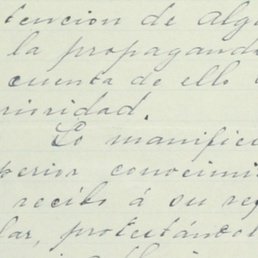 tencion de alg
la propagand
cuenta de ello
rioridad.
Lo manific
perior conocimi
recibo á su re
lar, protestándol